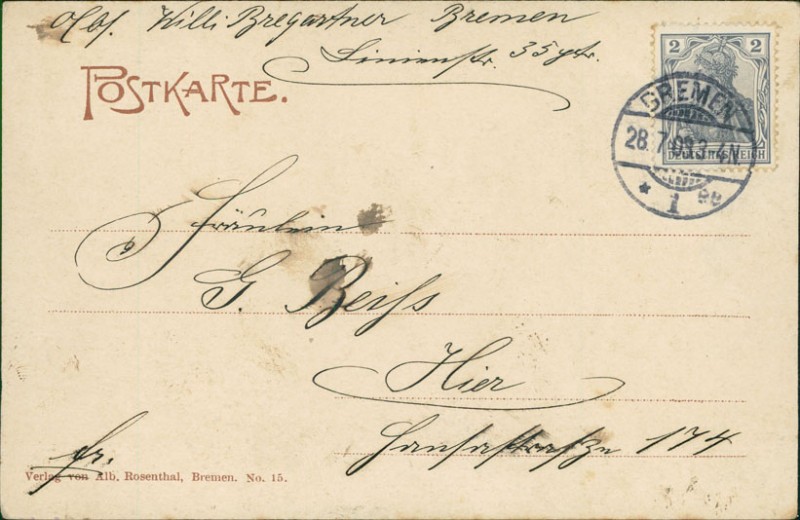 Abs. Willi Bregartner Bremen
Linienstr. 35 ptr.
POSTKARTE.
2 2
DEUTSCHES REICH
BREMEN
28.7.03.3-4N.
* 1 ee
Fräulein
G. Beiſs
Hier
Hansastraſze 174
fr.
Verlag von Alb. Rosenthal, Bremen. No. 15.